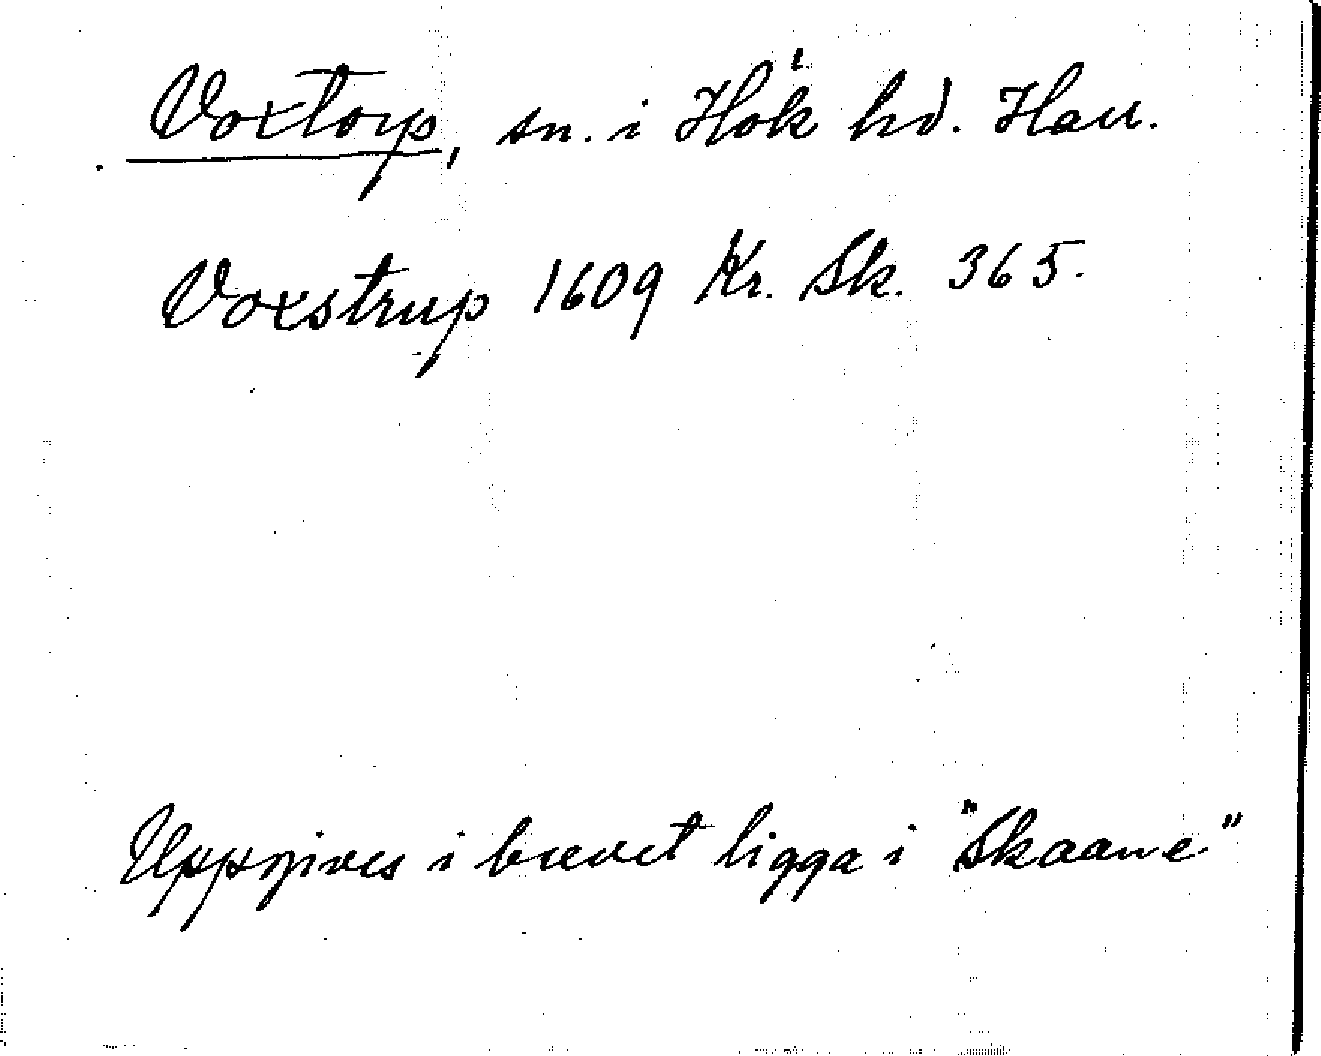 Voxtorp, sn. i Hök hd. Hall.
Voxstrup 1609 Kr. Sk. 365.
Uppgives i brevet ligga i "Skaane"